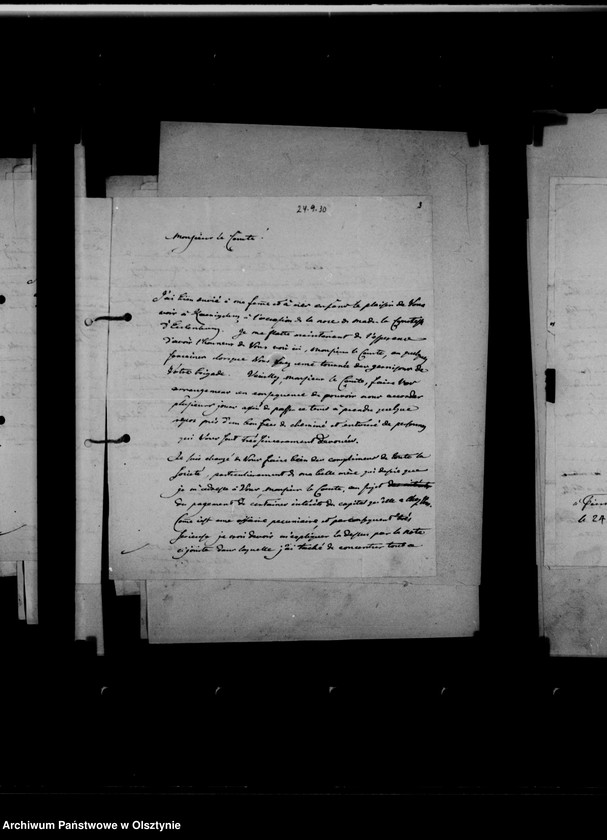 24.9.30
3
Monsieur le Comte!
J'ai bien envié à ma femme et à mes enfans le plaisir de Vous
voir à Koenigsberg à l'occasion de la noce de Mad. la Comtesse
d'Eulenburg. Je me flatte maintenant de l'espérance
d'avoir l'honneur de Vous voir ici, monsieur le Comte, au
prochain lorsque Vous ferez votre tournée des garnisons de
Votre brigade. Veuillez, monsieur le Comte, faire Vos
arrangemens en conséquence de pouvoir nous accorder
plusieurs jours afin de passer ce tems à prendre quelque
repos près d'un bon feu de cheminée et entouré de personnes
qui Vous sont très sincèrement dévouées.
Je suis chargé de Vous faire bien des complimens de toute la
société, particulièrement de ma belle mère, qui désire que
je m'adresse à Vous, monsieur le Comte, au sujet
du payement de certains intérêts du capital qu'elle a
Comme c'est une affaire pécuniaire et par conséquent très
sérieuse je crois devoir m'expliquer là dessus par la note
cijointe dans laquelle j'ai tâché de concentrer tout ce
à
le 24
Archiwum Państwowe w Olsztynie